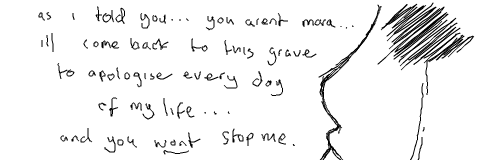 as i told you... you arent mara...
ill come back to this grave
to apologise every day
of my life...
and you wont stop me.